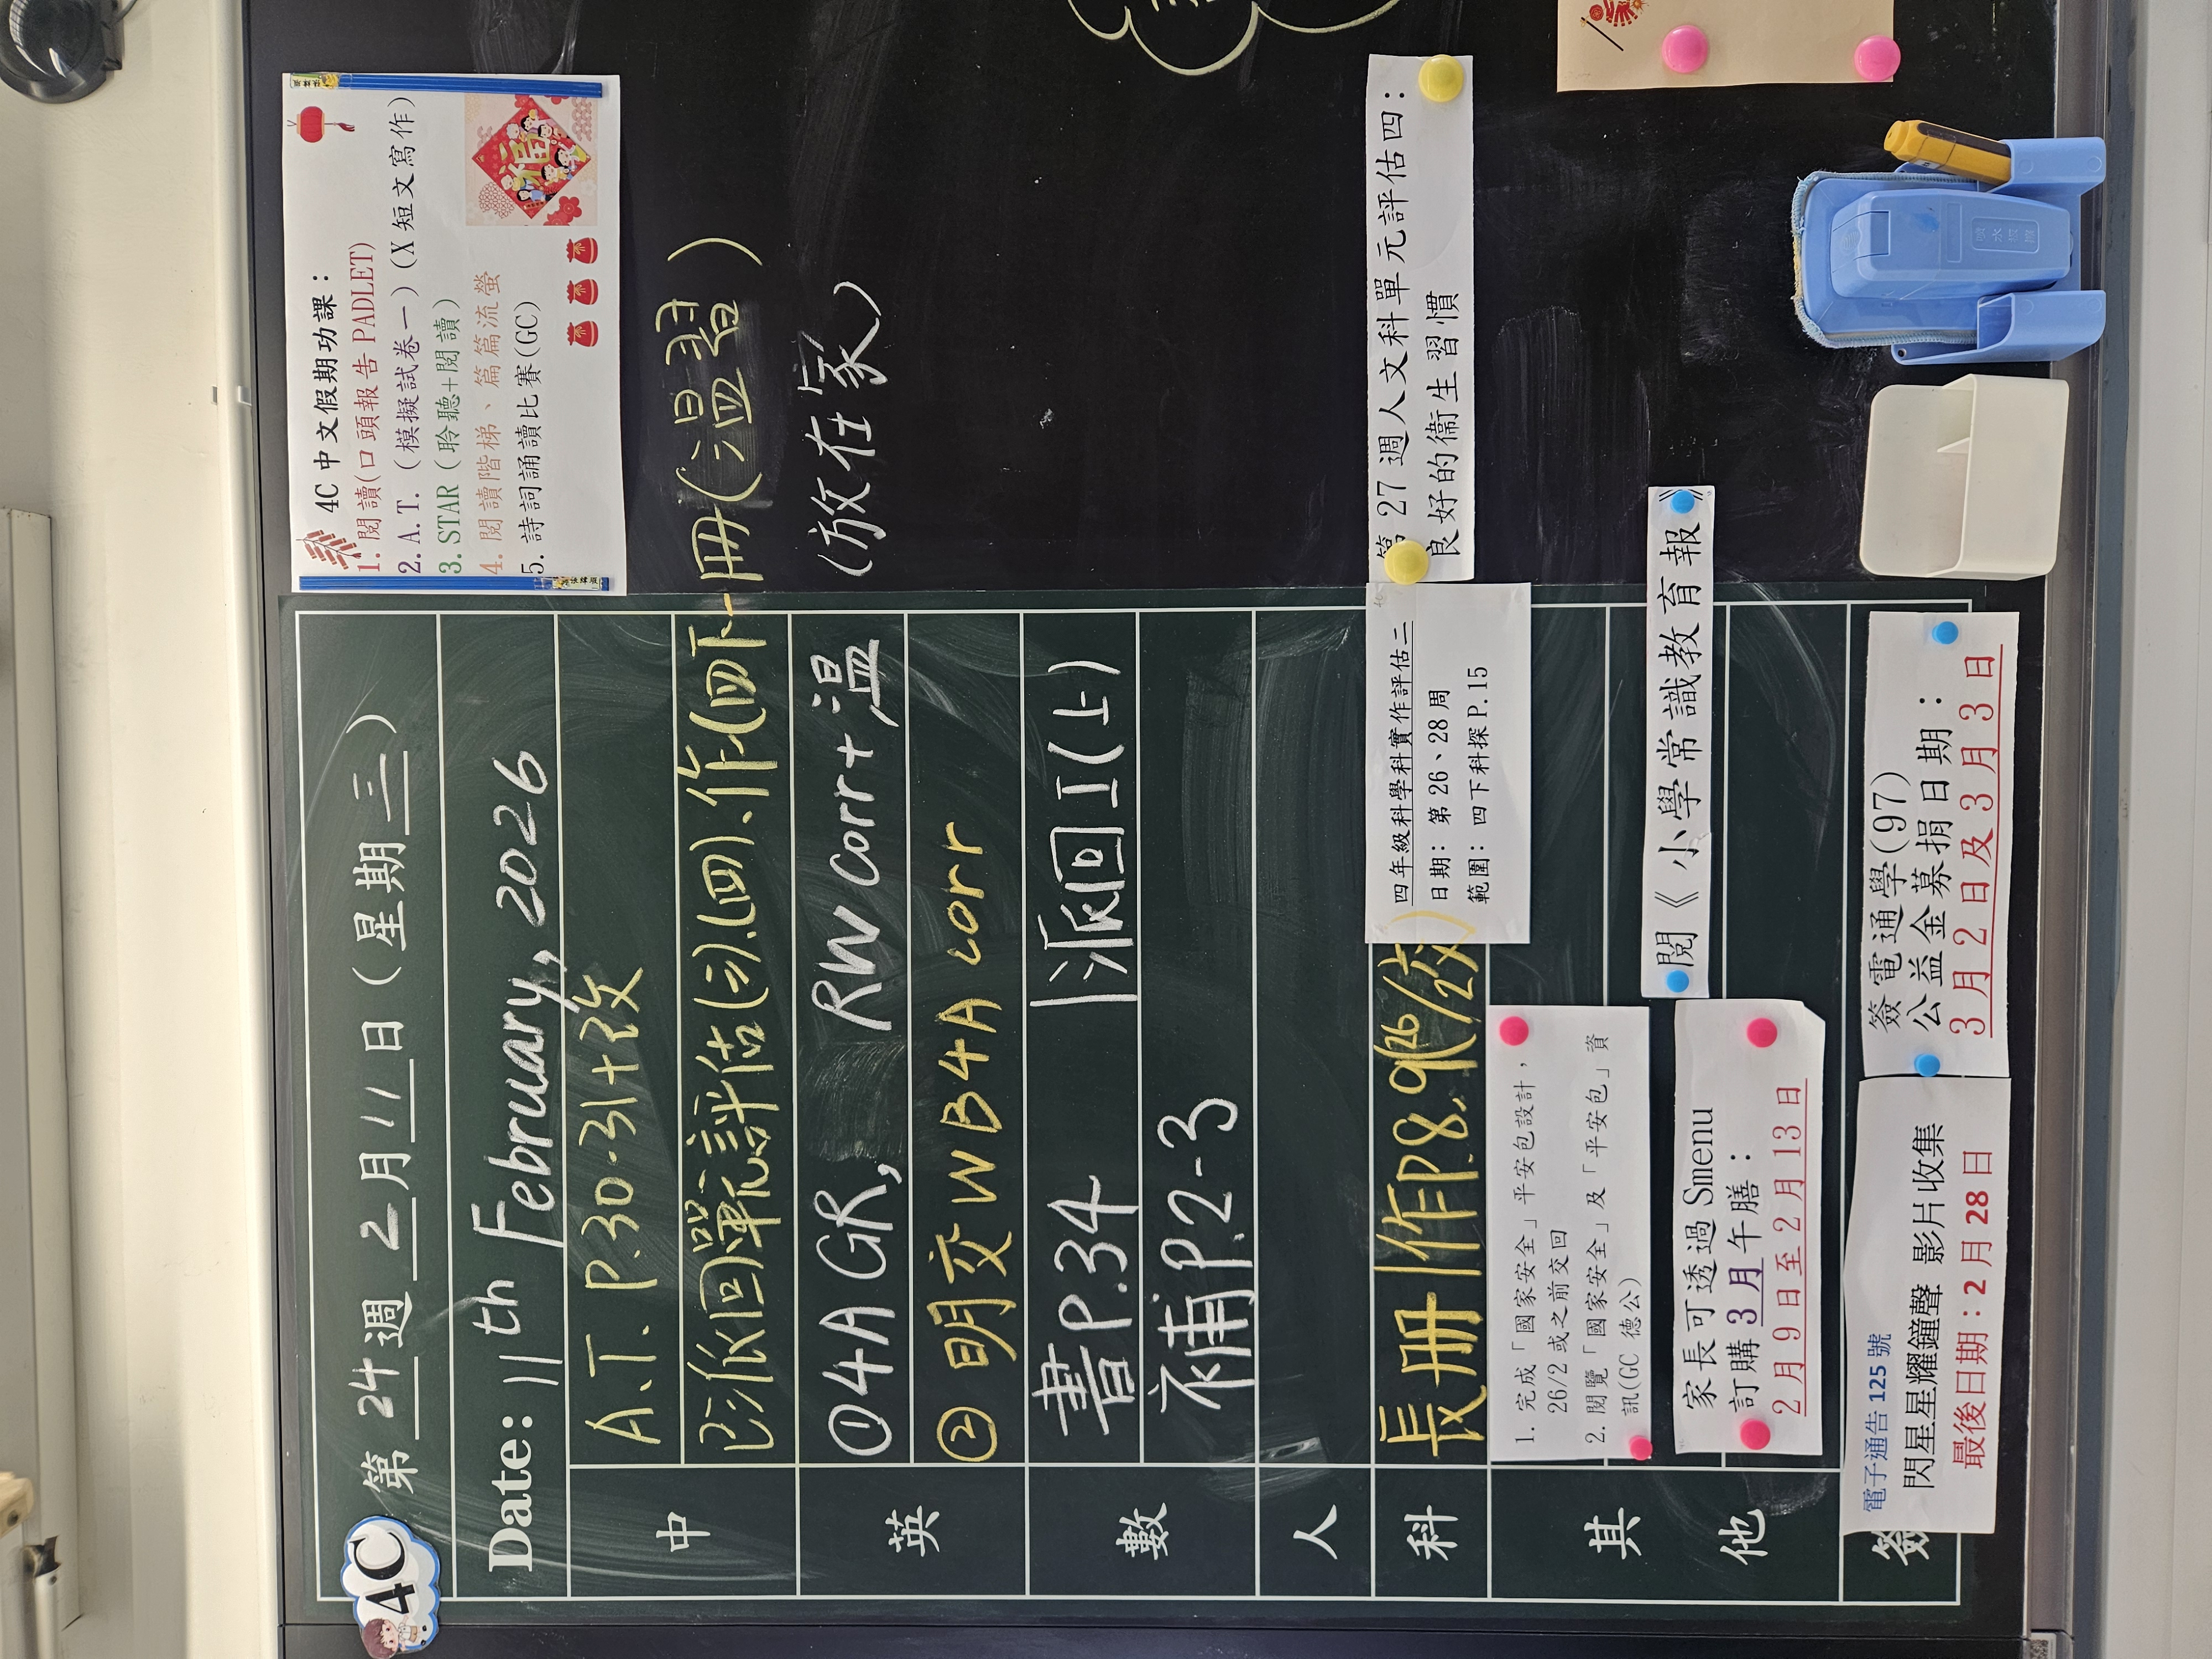 4C
第 24 週 2 月 11 日 (星期 三)
Date: 11th February, 2026
中
A.T. P.30-31+改
已派回單元評估(二).(四)、作(四下一冊(溫習)
英
①4A GR, RW corr+溫 (放在家)
②明交WB4A corr
數
書P.34 派回I(上)
補P.2-3
人
科
長冊 作P.8.9(26/2交)
其他
1. 完成「國家安全」平安包設計，
26/2 或之前交回
2. 閱覽「國家安全」及「平安包」資
訊(GC 德公)
家長可透過 Smenu
訂購 3 月午膳：
2 月 9 日至 2 月 13 日
閱《小學常識教育報》
四年級科學科實作評估二
日期: 第 26、28 周
範圍: 四下科探 P.15
第 27 週人文科單元評估四：
良好的衞生習慣
簽
電子通告 125 號
閃星星耀鐘聲 影片收集
最後日期：2 月 28 日
簽電通學(97)
公益金募捐日期：
3 月 2 日及 3 月 3 日
4C 中文假期功課：
1. 閱讀(口頭報告 PADLET)
2. A.T. (模擬試卷一) (X 短文寫作)
3. STAR (聆聽+閱讀)
4. 閱讀階梯、篇篇流螢
5. 詩詞誦讀比賽(GC)
福